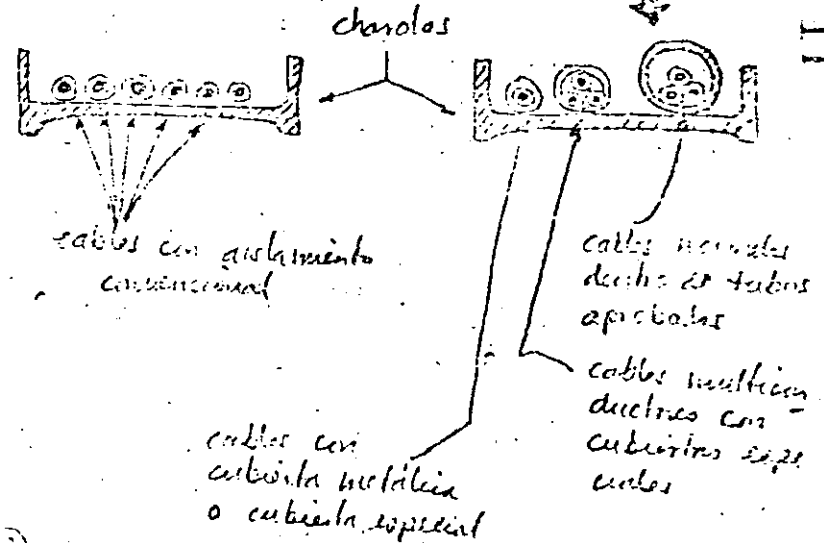 charolas
cables con aislamiento
convencional
cables normales
dentro de tubos
aprobados
cables multicon-
ductores con
cubiertas espe
ciales
cables con
cubierta metálica
o cubierta especial